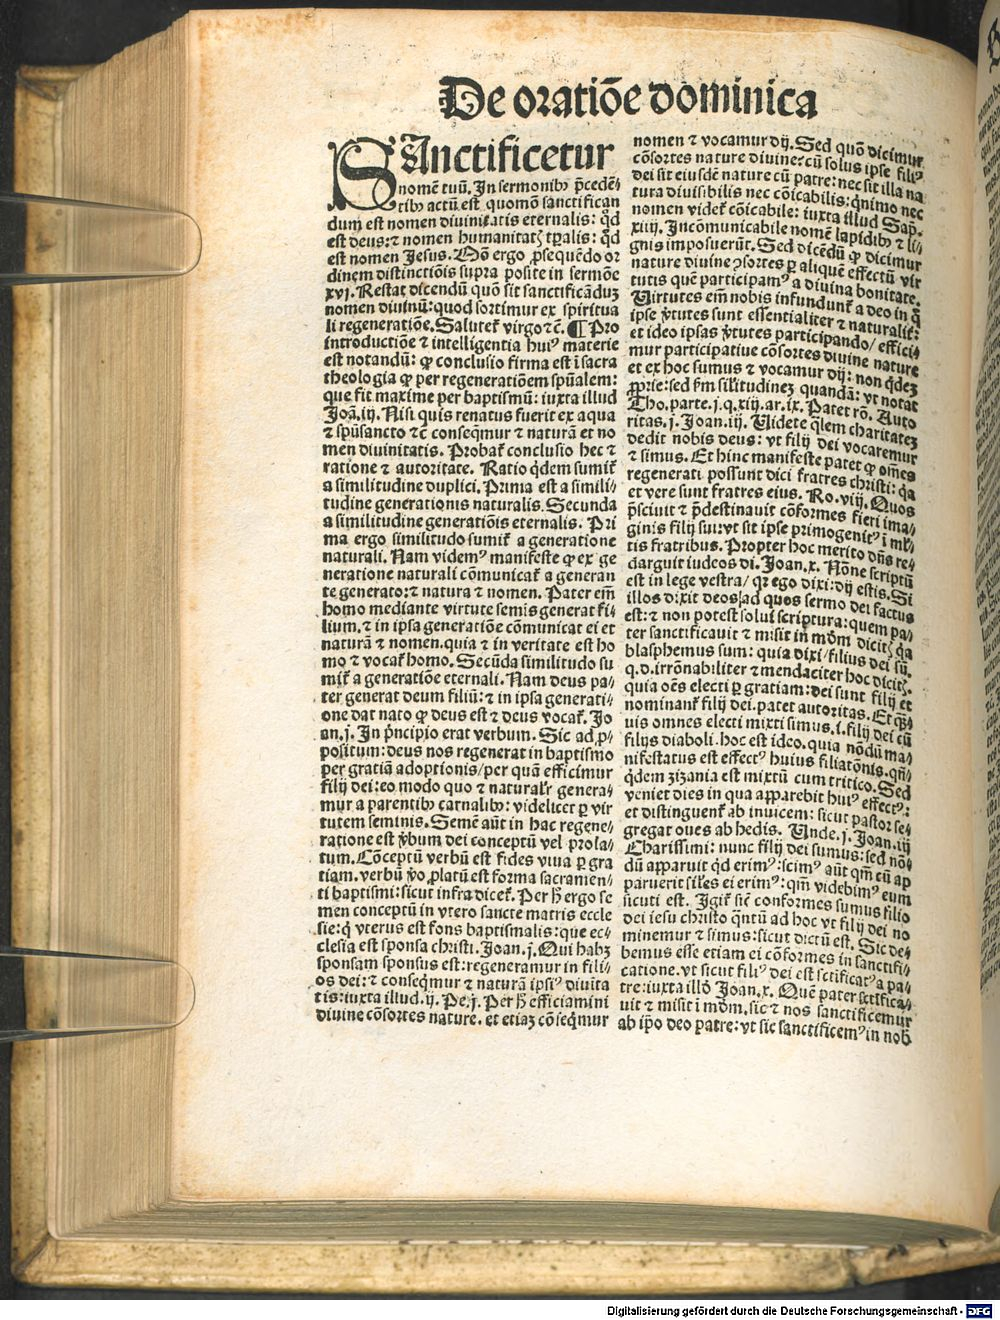 De oratiōe dominica
SAnctificetur
nomē tuū. In sermonibꝫ p̄cedē-
tibꝫ actū est quomō sanctifican
dum est nomen diuinitatis eternalis: qd̄
est deus: ⁊ nomen humanitatꝭ tp̄alis: qd̄
est nomen Jesus. Mō ergo ꝓsequēdo or
dinem distinctiōis supra posite in sermōe
xvj. Restat dicendū quō sit sanctificāduꝫ
nomen diuinū: quod sortimur ex spiritua
li regeneratiōe. Salutet᷑ virgo ⁊c̄. ¶ Pro
introductiōe ⁊ intelligentia huiꝰ materie
est notandū: ꝙ conclusio firma est ī sacra
theologia ꝙ per regeneratiōem spūalem:
que fit maxime per baptismū: iuxta illud
Joā. iij. Nisi quis renatus fuerit ex aqua
⁊ spūsancto ⁊c̄ conseq̄mur ⁊ naturā et no
men diuinitatis. Probat᷑ conclusio hec ⁊
ratione ⁊ autoritate. Ratio q̄dem sumit᷑
a similitudine duplici. Prima est a simili-
tudine generationis naturalis. Secunda
a similitudine generatiōis eternalis. Pri
ma ergo similitudo sumit᷑ a generatione
naturali. Nam videmꝰ manifeste ꝙ ex ge
neratione naturali cōmunicat᷑ a generan
te generato: ⁊ natura ⁊ nomen. Pater em̄
homo mediante virtute semis generat fi-
lium. ⁊ in ipsa generatiōe cōmunicat ei et
naturā ⁊ nomen. quia ⁊ in veritate est ho
mo ⁊ vocat᷑ homo. Secūda similitudo su
mit᷑ a generatiōe eternali. Nam deus pa-
ter generat deum filiū: ⁊ in ipsa generati-
one dat nato ꝙ deus est ⁊ deus vocat᷑. Jo
an. j. In p̄ncipio erat verbum. Sic ad ꝓ-
positum: deus nos regenerat in baptismo
per gratiā adoptionis/ per quā efficimur
filij dei: eo modo quo ⁊ naturalr̄ genera-
mur a parentibꝫ carnalibꝫ: videlicet ꝑ vir
tutem seminis. Semē aūt in hac regene-
ratione est v̄bum dei conceptū vel prola-
tum. Cōceptū verbū est fides viua ꝑ gra
tiam. verbū v̄o ꝓlatū est forma sacramen-
ti baptismi: sicut infra dicet᷑. Per h̄ ergo se
men conceptū in vtero sancte matris eccle
sie: q̄ vterus est fons baptismalis: que ec-
clesia est sponsa christi. Joan. j. Qui habꝫ
sponsam sponsus est: regeneramur in fili-
os dei: ⁊ conseq̄mur ⁊ naturā ipsiꝰ diuita
tis: iuxta illud. ij. Pe. j. Per h̄ efficiamini
diuine cōsortes nature. et etiaꝫ cōseq̄mur
nomen ⁊ vocamur dij. Sed quō dicimur
cōsortes nature diuine? cū solus ipse filiꝰ
dei sit eiusdē nature cū patre: nec sit illa na
tura diuisibilis nec cōicabilis: q̄nimo nec
nomen videt᷑ cōicabile: iuxta illud Sap̄.
xiiij. Incōmunicabile nomē lapidibꝫ ⁊ li-
gnis imposuerūt. Sed dicēdū ꝙ dicimur
nature diuine ꝯsortes ꝑ aliquē effectū vir
tutis quē participamꝰ a diuina bonitate.
Virtutes em̄ nobis infundunt᷑ a deo in q̄
ipse v̄tutes sunt essentialiter ⁊ naturalit᷑:
et ideo ipsas v̄tutes participando/ effici-
mur participatiue cōsortes diuine nature
et ex hoc sumus ⁊ vocamur dij: non q̄dez
ꝓprie: sed fm silitudineꝫ quandā: vt notat
Tho. parte. j. q. xiij. ar. ix. Patet rō. Auto
ritas. j. Joan. iij. Videte q̄lem charitateꝫ
dedit nobis deus: vt filij dei vocaremur
⁊ simus. Et hinc manifeste patet ꝙ om̄es
regenerati possunt dici fratres christi: q̄a
et vere sunt fratres eius. Ro. viij. Quos
p̄sciuit ⁊ p̄destinauit cōformes fieri ima-
ginis filij sui: vt sit ipse primogenitꝰ ī ml̄-
tis fratribus. Propter hoc merito dn̄s re-
darguit iudeos di. Joan. x. Nōne scriptū
est in lege vestra/ qꝛ ego dixi: dij estis. Si
illos dixit deos/ ad quos sermo dei factus
est: ⁊ non potest solui scriptura: quem pa-
ter sanctificauit ⁊ misit in mōm dicitꝭ q̄a
blasphemus sum: quia dixi/ filius dei sū.
q. d. irrōnabiliter ⁊ mendaciter hoc dicitꝭ.
quia oēs electi ꝑ gratiam: dei sunt filij et
nominant᷑ filij dei. patet autoritas. Et q̄m-
uis omnes electi mixti simus. i. filij dei cū
filijs diaboli. hoc est ideo. quia nōdū ma-
nifestatus est effectꝰ huius filiatōnis. qm̄
q̄dem zizania est mixtū cum tritico. Sed
veniet dies in qua apparebit huiꝰ effectꝰ:
et distinguent᷑ ab inuicem: sicut pastor se-
gregat oues ab hedis. Unde. j. Joan. iij
Charissimi: nunc filij dei sumus: sed nō-
dū apparuit qd̄ erimꝰ: scimꝰ aūt qm̄ cū ap
paruerit siles ei erimꝰ: qm̄ videbimꝰ eum
sicuti est. Igit᷑ sic̄ conformes sumus filio
dei iesu christo q̄ntū ad hoc vt filij dei no
minemur ⁊ simus: sicut dictū est. Sic de-
bemus esse etiam ei cōformes in sanctifi-
catione. vt sicut filiꝰ dei est sctificatꝰ a pa-
tre: iuxta illō Joan. x. Quē pater sctifica-
uit ⁊ misit ī mōm. sic ⁊ nos sanctificemur
ab ip̄o deo patre: vt sic sanctificemꝰ in nob̄
Digitalisierung gefördert durch die Deutsche Forschungsgemeinschaft - DFG